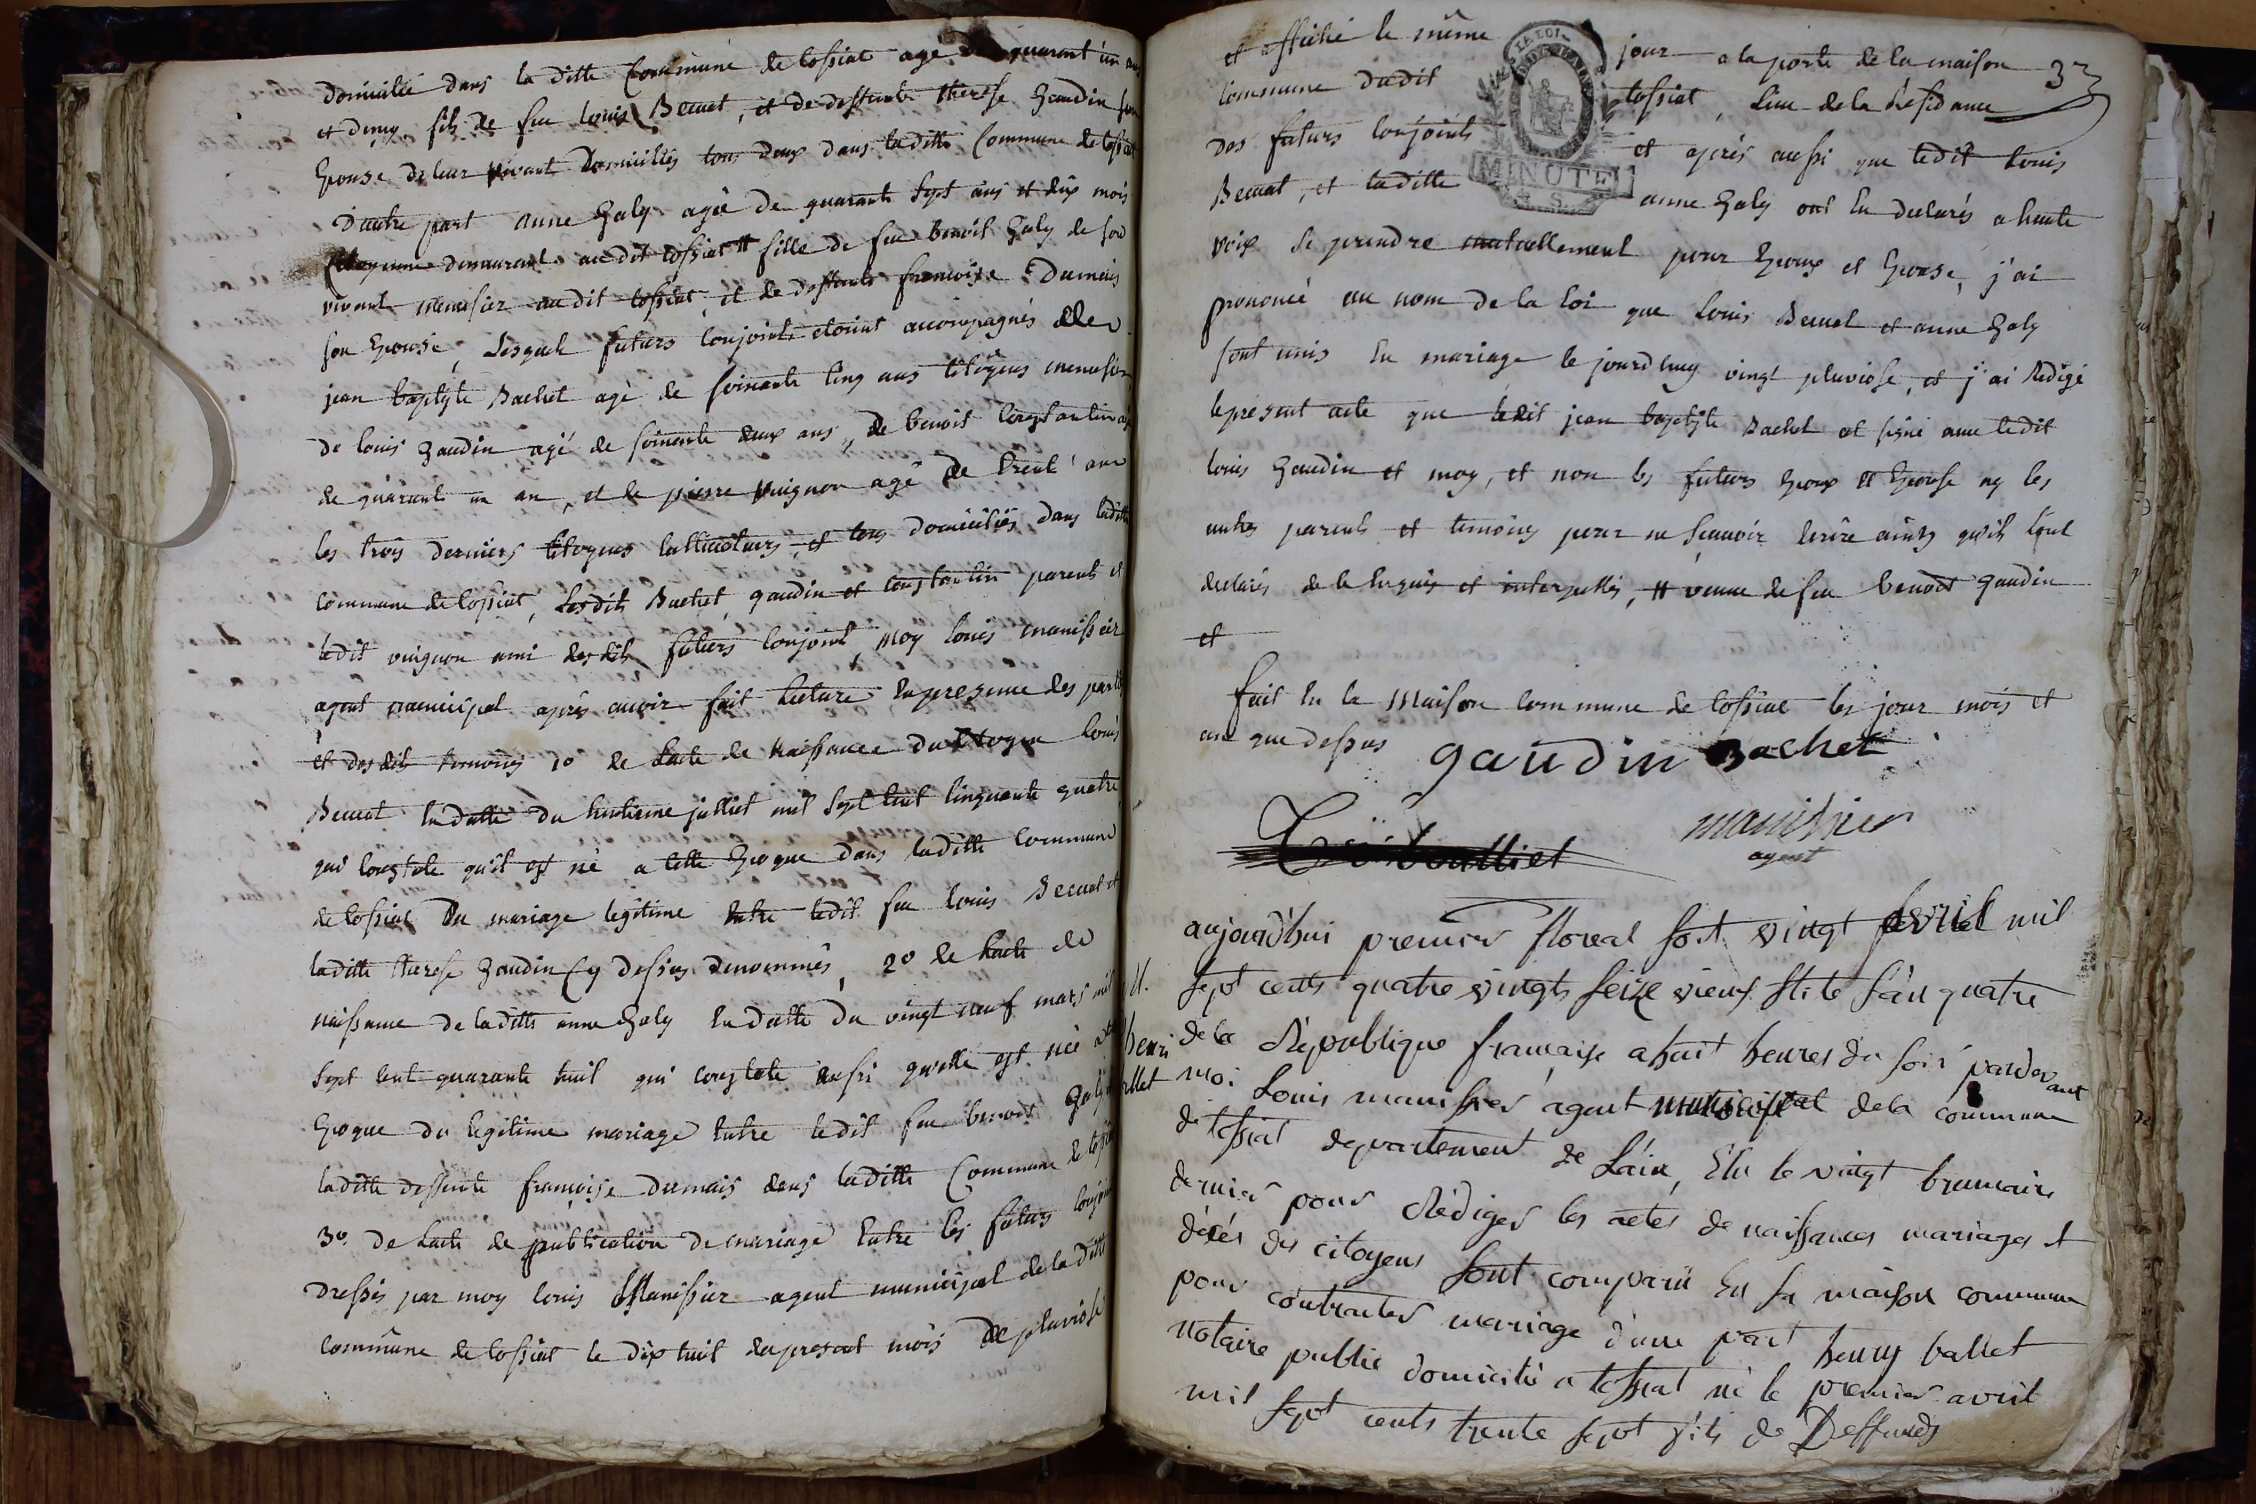 domicilié dans la ditte Commune de tossiat agé de quarant'un ans
et demy fils de feu louis Becuat, et de deffunte therese Gaudin son
Epouse de leur vivant domiciliés tous deux dans laditte Commune de tossiat
D'autre part anne Galy agée de quarante sept ans et dix mois
Citoyenne demeurant au dit tossiat # fille de feu benoit Galy de son
vivant menusier au dit tossiat, et de deffunte francoise Dumais
son Epouse, Lesquel futurs conjoints etoint accompagnés de
jean baptiste Bachet agé de soixante cinq ans citoyens menusier
de louis Gaudin agé de soixante deux ans, de benoit Constantin agé
de quarant un an, et de pierre vuignon agé de trent' ans
les trois derniers citoyens cultivateurs, et tous domiciliés dans laditte
commune de tossiat, Lesdits Bachet, gaudin et constantin parents et
ledit vuignon ami desdits futurs conjoint, moy louis manissier
agent municipal aprés avoir fait lecture en presence des parties
et desdits temoins 1º de l'acte de naissance du citoyen louis
Becuat en datte du huitieme juilliet mil sept cent cinquante quatre
qui constate qu'il est né a cette Epoque dans laditte commune
de tossiat du mariage legitime entre ledit feu louis Becuat et
laditte therese Gaudin cy dessus denommés, 2º de l'acte de
naissance de laditte anne Galy en datte du vingt neuf mars mil
sept cent quarante huit qui constate aussi qu'elle est née a cette
Epoque du legitime mariage entre ledit feu benoit Galy et
laditte deffunte françoise dumais dans laditte Commune de tossiat
3º. de l'acte de publication de mariage entre les futurs conjoints
dressés par moy louis Manissier agent municipal de la ditte
commune de tossiat le dix huit du present mois de pluviose
et affiché le même jour a la porte de la maison 33
commune dudit tossiat, lieu de la residance
des futurs conjoints et aprés aussi que ledit louis
Becuat, et laditte anne Galy ont eu declarés a haute
MINUTE
voix se prendre mutuellement pour Epoux et Epouse, j'ai
prononcé au nom de la loi que louis Becuat et anne Galy
sont unis en mariage le jourd'huy vingt pluviose, et j'ai Redigé
le present acte que ledit jean baptiste Bachet at signé avec ledit
louis Gaudin et moy, et non les futurs Epoux et Epouse ny les
autres parents et temoins pour ne sçavoir ecrire ainsy qu'ils l'ont
declarés de le enquis et interpellés, # veuve de feu benoit gaudin
et
fait en la Maison commune de tossiat les jour mois et
an que dessus
gaudin Bachet
manissier
agent
aujourd'hui premier floreal soit vingt avril mil
sept cents quatre vingts seize vieux stile l'an quatre
de la République française a huit heures du soir pardevant
moi Louis manissier agent municipal de la commune
de tossiat departement de L'ain, Elu le vingt brumaire
dernier pour Rédiger les actes de naissances mariages et
décés des citoyens sont comparu En la maison commune
pour contracter mariage d'une part henry ballet
notaire public domicilié a tossiat né le premier avril
mil sept cents trente sept fils de Deffunds